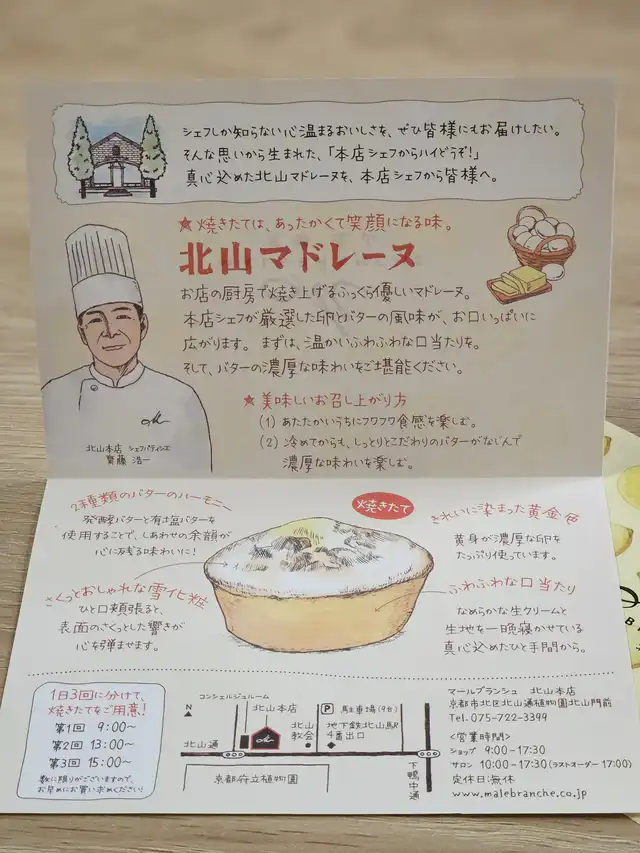 シェフしか知らない心温まるおいしさを、ぜひ皆様にもお届けしたい。
そんな思いから生まれた、「本店シェフからハイどうぞ!」
真心込めた北山マドレーヌを、本店シェフから皆様へ。
★焼きたては、あったかくて笑顔になる味。
北山マドレーヌ
お店の厨房で焼き上げるふっくら優しいマドレーヌ。
本店シェフが厳選した卵とバターの風味が、お口いっぱいに
広がります。まずは、温かいふわふわな口当たりを。
そして、バターの濃厚な味わいをご堪能ください。
★美味しいお召し上がり方
(1) あたたかいうちにフワフワ食感を楽しむ。
(2) 冷めてからも、しっとりとこだわりのバターがなじんで
濃厚な味わいを楽しむ。
北山本店 シェフパティシエ
齋藤 浩一
2種類のバターのハーモニー
発酵バターと有塩バターを
使用することで、しあわせの余韻が
心に残る味わいに!
焼きたて
きれいに染まった黄金色
黄身が濃厚な卵を
たっぷり使っています。
さくっとおしゃれな雪化粧
ひと口頬張ると、
表面のさくっとした響きが
心を弾ませます。
ふわふわな口当たり
なめらかな生クリームと
生地を一晩寝かせている
真心込めたひと手間から。
1日3回に分けて、
焼きたてをご用意!
第1回 9:00~
第2回 13:00~
第3回 15:00~
数に限りがございますので、
お早めにお買い求めください!
コンシェルジュルーム
N
北山本店
P 駐車場(9台)
北山通
北山
教会
地下鉄北山駅
4番出口
京都府立植物園
下鴨中通
マールブランシュ 北山本店
京都市北区北山通植物園北山門前
Tel. 075-722-3399
<営業時間>
ショップ 9:00-17:30
サロン 10:00-17:30(ラストオーダー 17:00)
定休日:無休
www.malebranche.co.jp